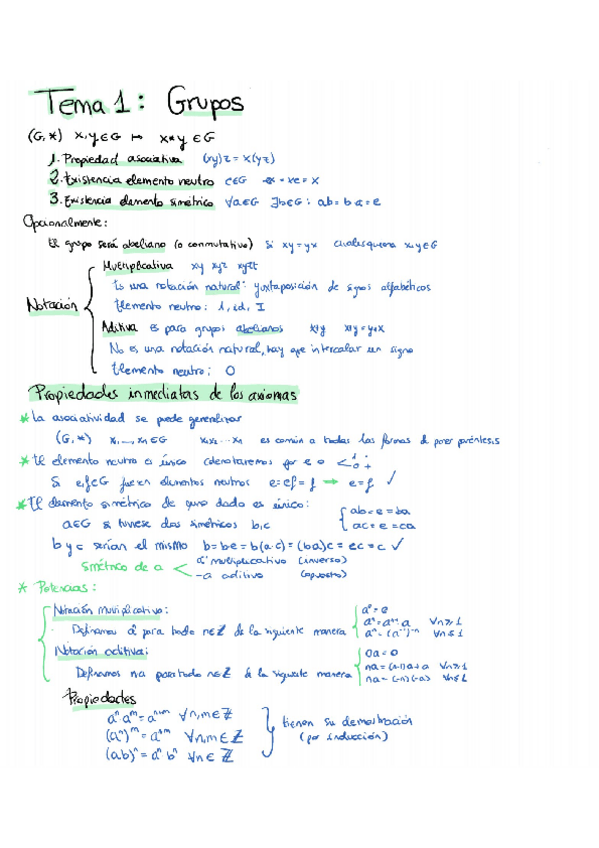 Tema 1: Grupos
(G,*) x,y∈G ↦ x*y ∈G
1. Propiedad asociativa (xy)z = x(yz)
2. Existencia elemento neutro e∈G ex = xe = x
3. Existencia elemento simétrico ∀a∈G ∃b∈G: ab = ba = e
Opcionalmente:
El grupo será abeliano (o conmutativo) si xy = yx cualesquiera x,y∈G
Notación
Multiplicativa xy xyz xyzt
Es una notación natural: yuxtaposición de signos alfabéticos
Elemento neutro: 1, id, I
Aditiva es para grupos abelianos x+y x+y=y+x
No es una notación natural, hay que intercalar un signo
Elemento neutro: 0
Propiedades inmediatas de los axiomas
* La asociatividad se puede generalizar
(G,*) x₁,...,xₙ∈G x₁x₂...xₙ es común a todas las formas de poner paréntesis
* El elemento neutro es único (denotaremos por e o < 1 · 0 +
Si e,f∈G fuesen elementos neutros e=ef=f → e=f ✓
* El elemento simétrico de uno dado es único:
a∈G si tuviese dos simétricos b,c
{ ab=e=ba
ac=e=ca
b y c serían el mismo b=be=b(a·c)=(ba)c=ec=c ✓
Simétrico de a < a⁻¹ multiplicativo (inverso)
-a aditivo (opuesto)
* Potencias:
Notación multiplicativa:
Definimos aⁿ para todo n∈ℤ de la siguiente manera
a⁰=e
aⁿ=aⁿ⁻¹a ∀n≥1
Notación aditiva:
Definimos na para todo n∈ℤ de la siguiente manera
0a=0
na=(n-1)a+a ∀n≥1
na=(-n)(-a)
Propiedades
aⁿaᵐ=aⁿ⁺ᵐ ∀n,m∈ℤ
(aⁿ)ᵐ=aⁿᵐ ∀n,m∈ℤ
(ab)ⁿ=aⁿbⁿ ∀n∈ℤ
tienen su demostración
(por inducción)